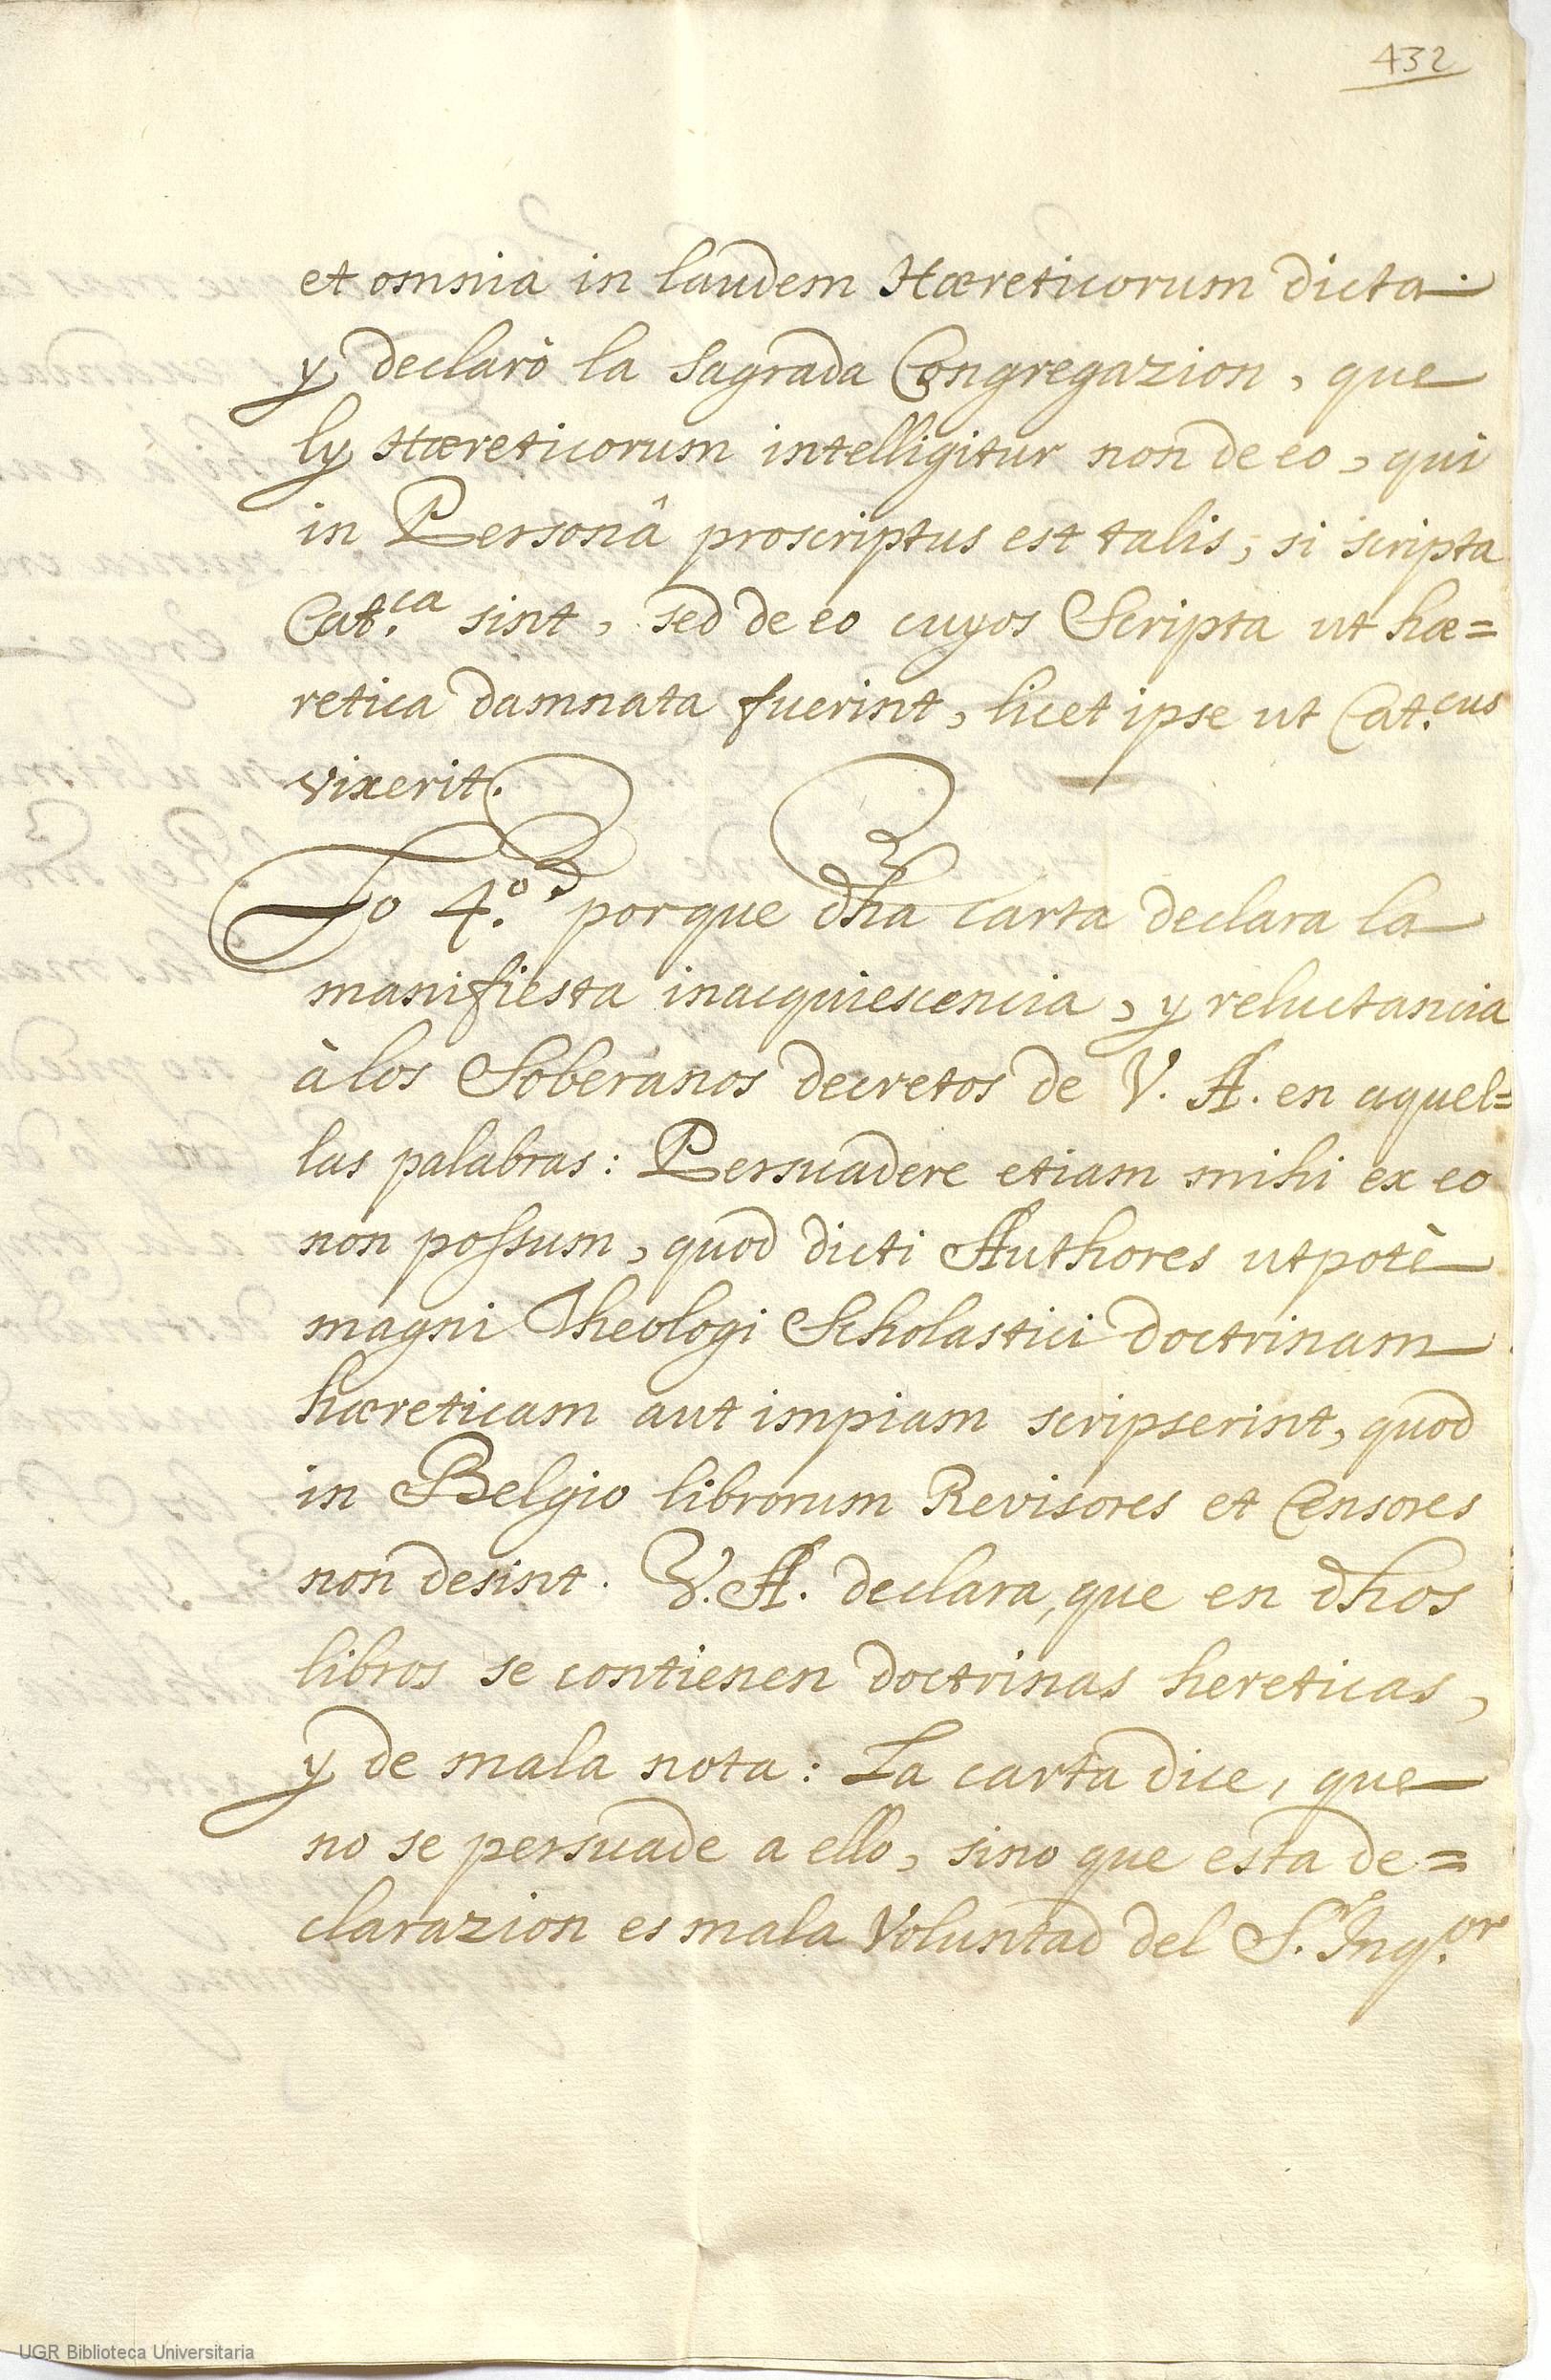 432
et omnia in laudem Hæreticorum dicta.
y declarò la Sagrada Congregazion, que
ly Hæreticorum intelligitur non de eo, qui
in Personâ proscriptus est talis, si scripta
Cat.ca sint, sed de eo cuyos Scripta ut hæ=
retica damnata fuerint, licet ipse ut Cat.cus
vixerit.
Lo 4.º porque dha carta declara la
manifiesta inacquiescencia, y reluctancia
à los Soberanos decretos de V. A. en aquel=
las palabras: Persuadere etiam mihi ex eo
non possum, quod dicti Authores utpotè
magni Theologi Scholastici doctrinam
hæreticam aut impiam scripserint, quod
in Belgio librorum Revisores et Censores
non desint. V. A. declara, que en dhos
libros se contienen doctrinas hereticas,
y de mala nota: La carta dice, que
no se persuade a ello, sino que esta de=
clarazion es mala Voluntad del S.r Inq.or
UGR Biblioteca Universitaria